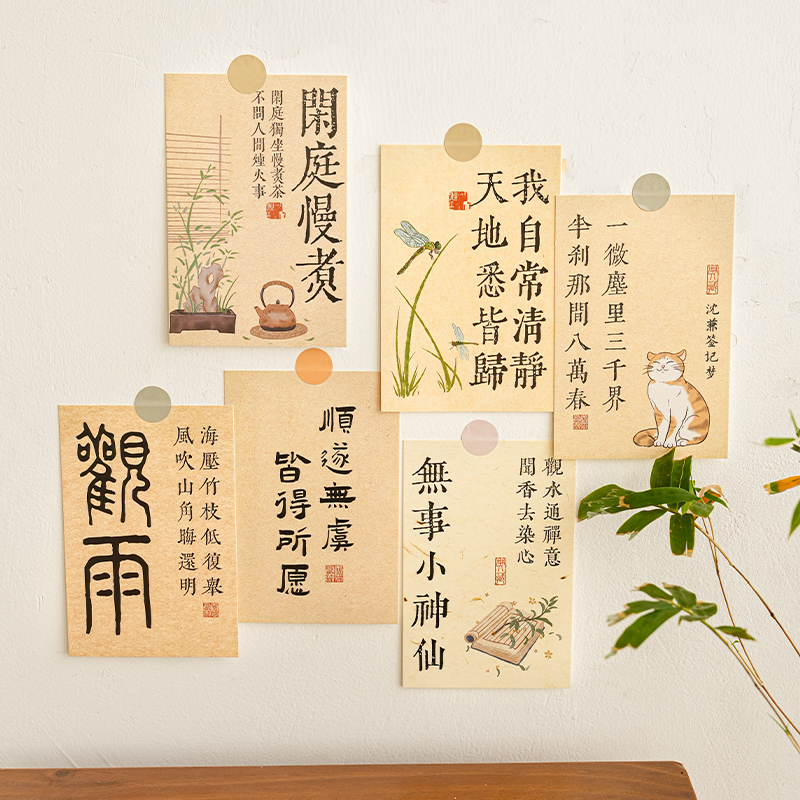 閑庭慢煮
閑庭獨坐慢煮茶
不問人間煙火事
我自常清靜
天地悉皆歸
沈蒹签记梦
一微塵里三千界
半刹那間八萬春
海壓竹枝低復舉
風吹山角晦還明
觀雨
順遂無虞
皆得所愿
觀水通禪意
聞香去染心
無事小神仙